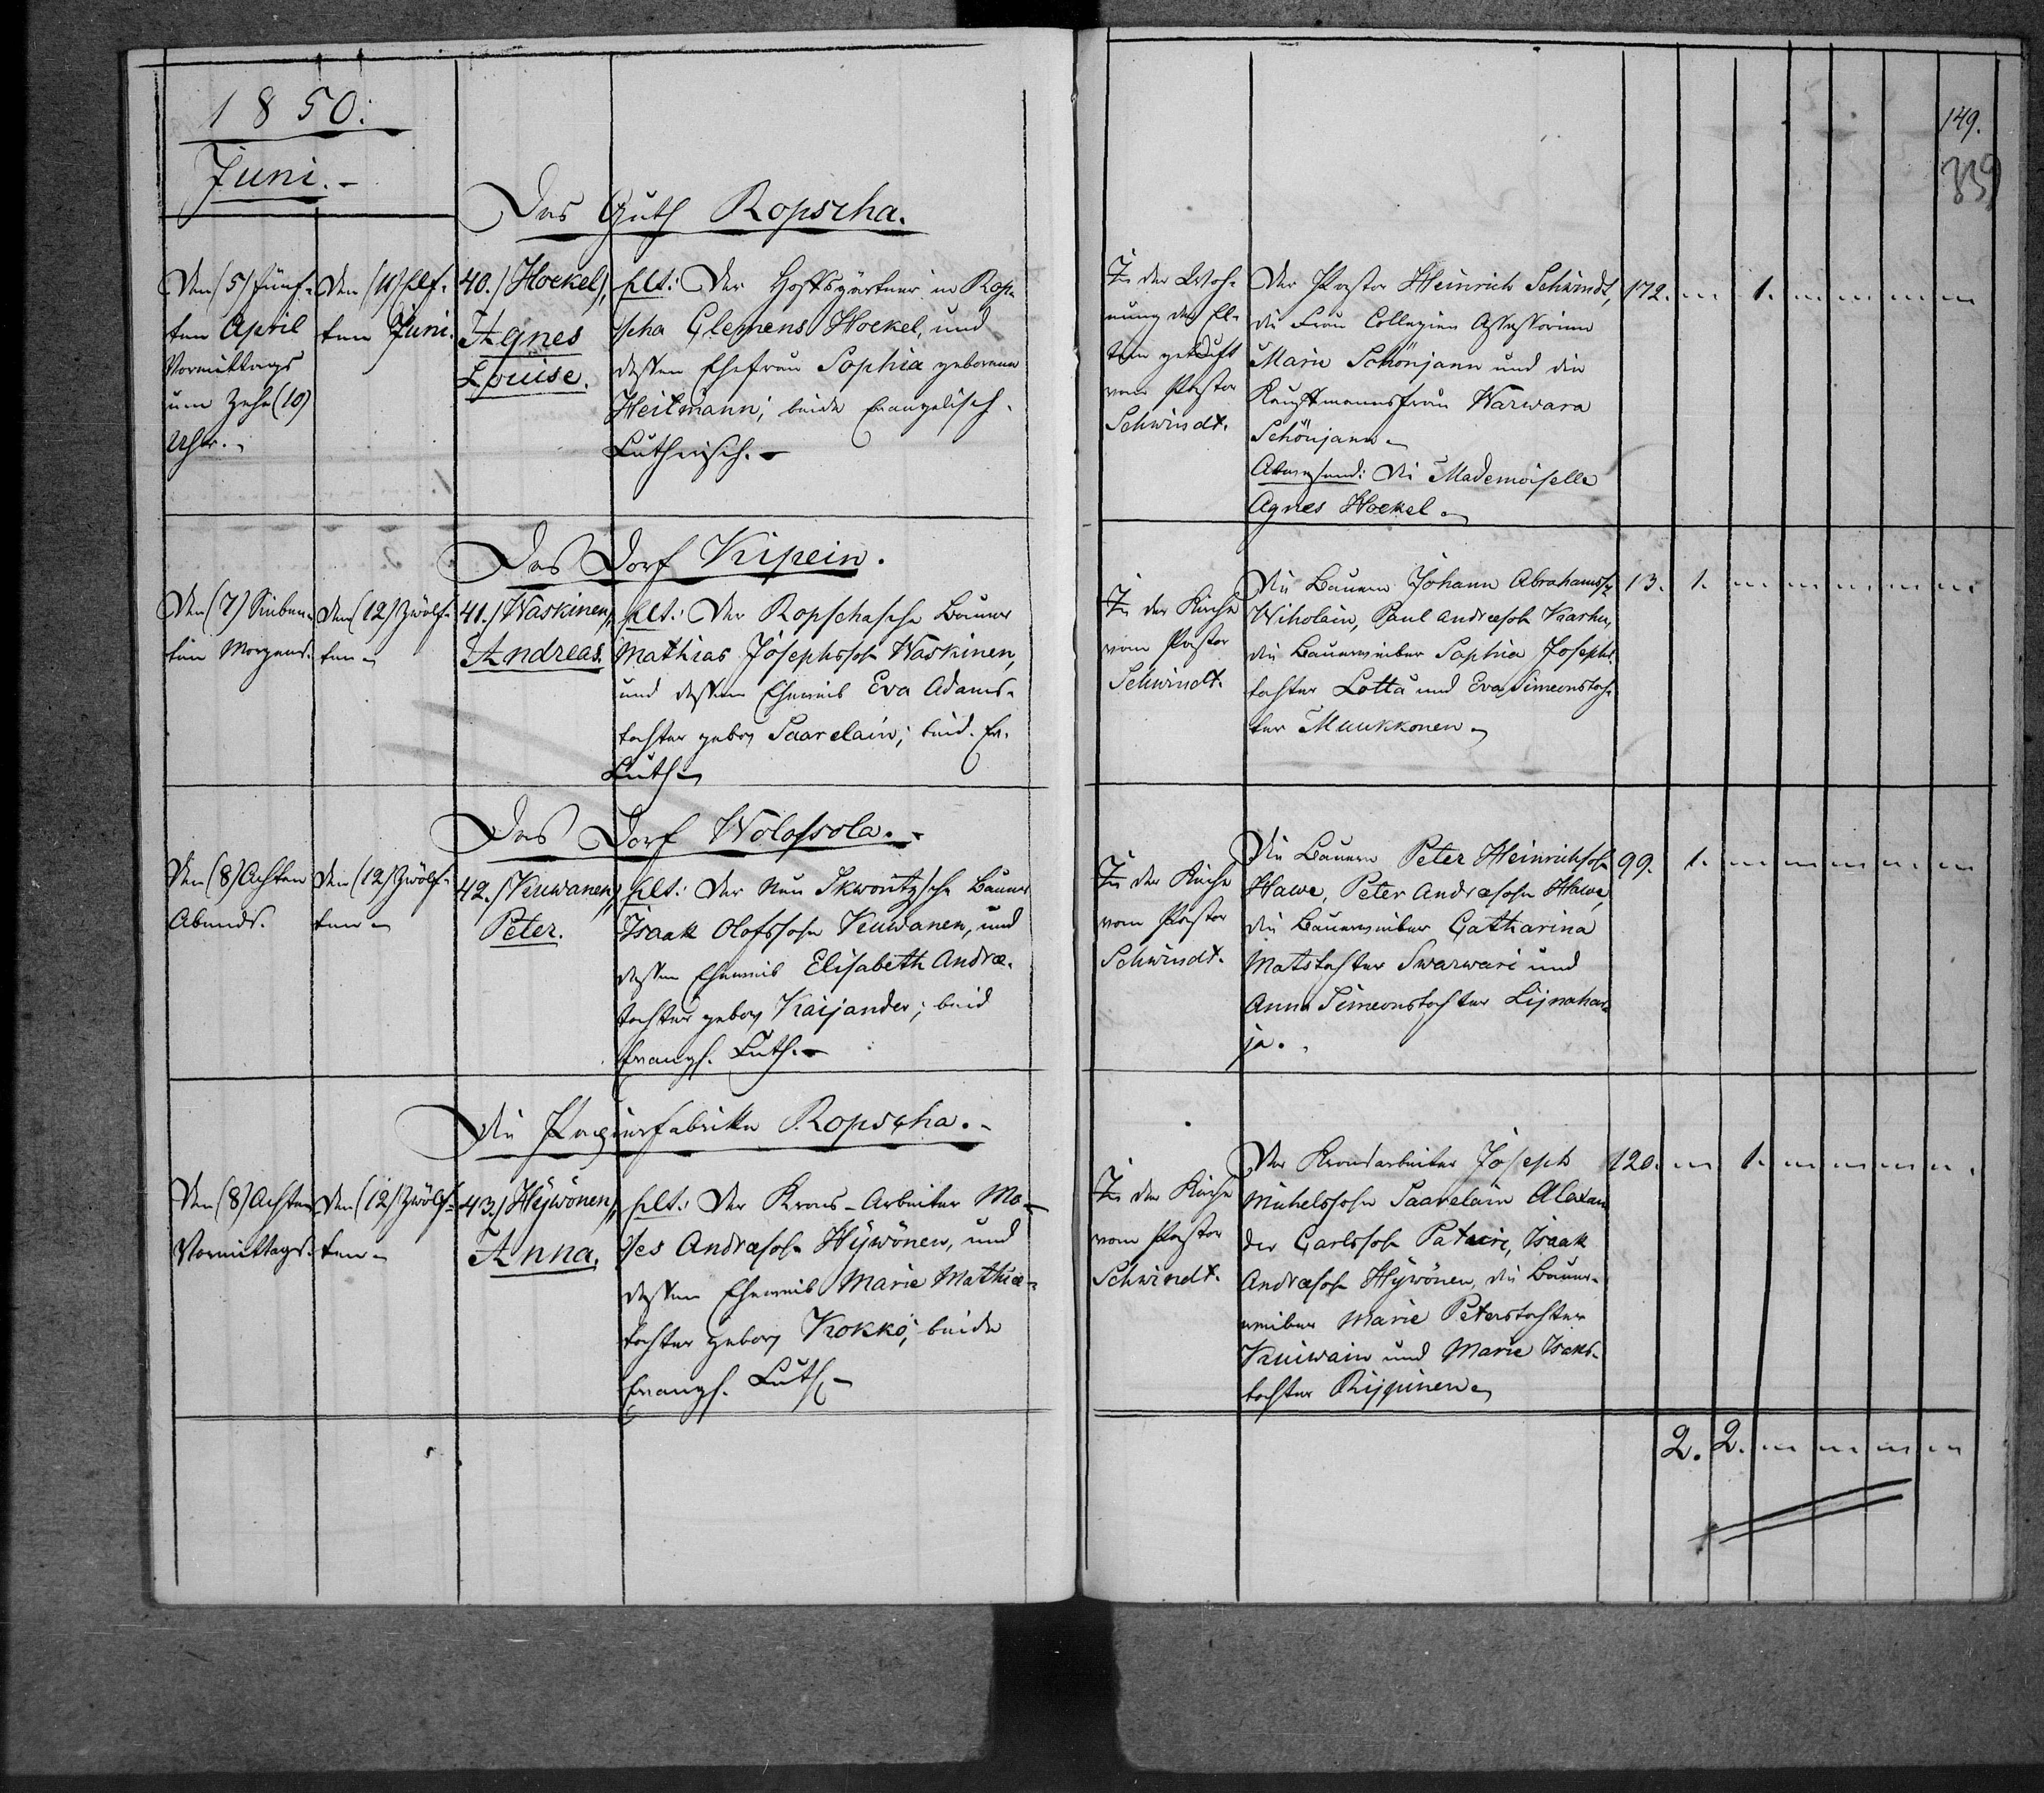 1850.
Juni.
149.
339
Das Guth Ropscha.
Den (5) fünf-
ten April
Vormittags
um Zehn (10)
Uhr.
Den (11) Elf-
ten Juni.
40./ Hoekel,
Agnes
Louise.
Elt: Der Hofsgärtner in Rop-
scha Clemens Hoekel, und
dessen Ehefrau Sophia geborene
Heilmann; beide Evangelisch-
Lutherisch.
In der Woh-
nung der El-
tern getauft
vom Pastor
Schwindt.
Der Pastor Heinrich Schwindt,
die Frau Collegien Assessorinn
Marie Schönjann und die
Kaufmannsfrau Warwara
Schönjann
Abwesend: Die Mademoiselle
Agnes Hoekel
172. 1.
Das Dorf Kipein.
Den (7) Sieben-
ten Morgens.
Den (12) Zwölf-
ten
41./ Waskinen,
Andreas.
Elt: Der Ropschasche Bauer
Mathias Josephssohn Waskinen,
und dessen Eheweib Eva Adams-
tochter gebor Saarelain; beid. Ev.
Luth
In der Kirche
vom Pastor
Schwindt.
Die Bauern Johann Abrahamss
Wiholain, Paul Andreæsohn Kaarhu,
die Bauerweiber Sophia Josephs-
tochter Lotta und Eva Simeonstoch-
ter Muukkonen
13. 1.
Das Dorf Wolossola.
Den (8) Achten
Abends.
Den (12) Zwölf-
ten
42./ Keuwanen,
Peter.
Elt: Der Neu Skworitzsche Bauer
Isaak Olofssohn Keuwanen, und
dessen Eheweib Elisabeth Andreæ-
tochter gebor Kaijander; beid
Evangl. Luth.
In der Kirche
vom Pastor
Schwindt.
Die Bauern Peter Heinrichsohn
Hawe, Peter Andreæsohn Hawe,
die Bauerweiber Catharina
Matstochter Swarwari und
Anna Simeonstochter Lijnahar-
ja.
99. 1.
Die Papierfabrike Ropscha.
Den (8) Achten
Vormittags.
Den (12) Zwölf-
ten
43./ Hÿwönen,
Anna.
Elt: Der Krons-Arbeiter Mo-
ses Andreæsohn Hÿwönen, und
dessen Eheweib Marie Mathiæ-
tochter gebor Kokko; beide
Evangl. Luth.
In der Kirche
vom Pastor
Schwindt.
Der Kronsarbeiter Joseph
Michelssohn Saarelain Alexan
der Carlssohn Patairi, Isaak
Andreæsohn Hÿwönen, die Bauer-
weiber Marie Peterstochter
Kauiwain und Marie Isaks-
tochter Rijpinen
120. 1.
2. 2.